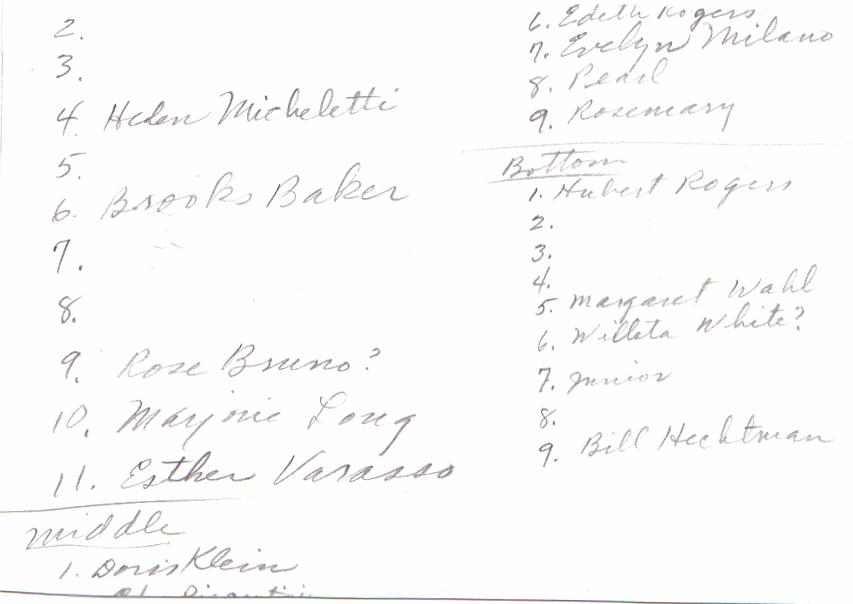 2.
3.
4. Helen Micheletti
5.
6. Brooks Baker
7.
8.
9. Rose Bruno?
10. Marjorie Long
11. Esther Varasso
Middle
1. Doris Klein
6. Edith Rogers
7. Evelyn Milano
8. Pearl
9. Rosemary
Bottom
1. Hubert Rogers
2.
3.
4.
5. Margaret Wahl
6. Willeta White?
7. Junior
8.
9. Bill Hecktman